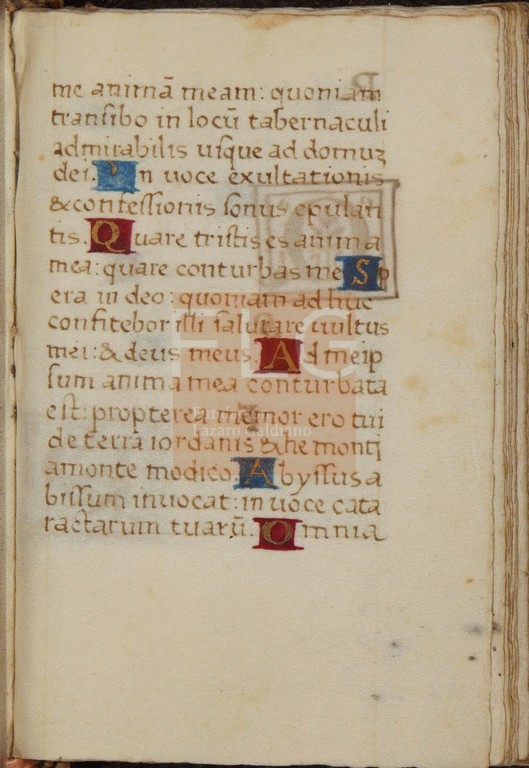 me animā meam: quoniam
transibo in locū tabernaculi
admirabilis usque ad domuʒ
dei. In uoce exultationis
& confessionis sonus epulan
tis. Quare tristis es anima
mea: quare conturbas me Sp
era in deo: quoniam ad huc
confitebor illi salutare uultus
mei: & deus meus. Ad meip
sum anima mea conturbata
est: propterea memor ero tui
de terra iordanis & he monti
amonte modico. Abyssus a
bissum inuocat: in uoce cata
ractarum tuarū. Omnia
FLG
Fundación
Lázaro Galdiano